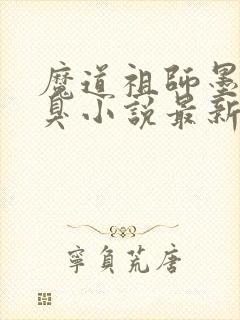 魔道祖師墨
臭小說最新
寧負荒唐